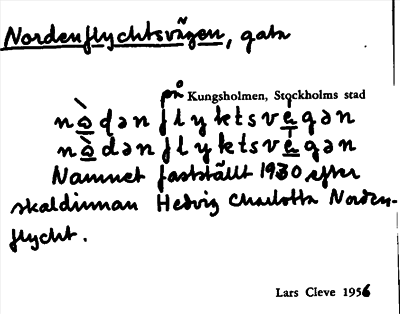 Nordenflychtsvägen, gata
på Kungsholmen, Stockholms stad
nò̲dən flyktsvè̲gən
nò̲dən flyktsvè̲gən
Namnet fastställt 1930 efter
skaldinnan Hedvig Charlotta Norden-
flycht.
Lars Cleve 1956